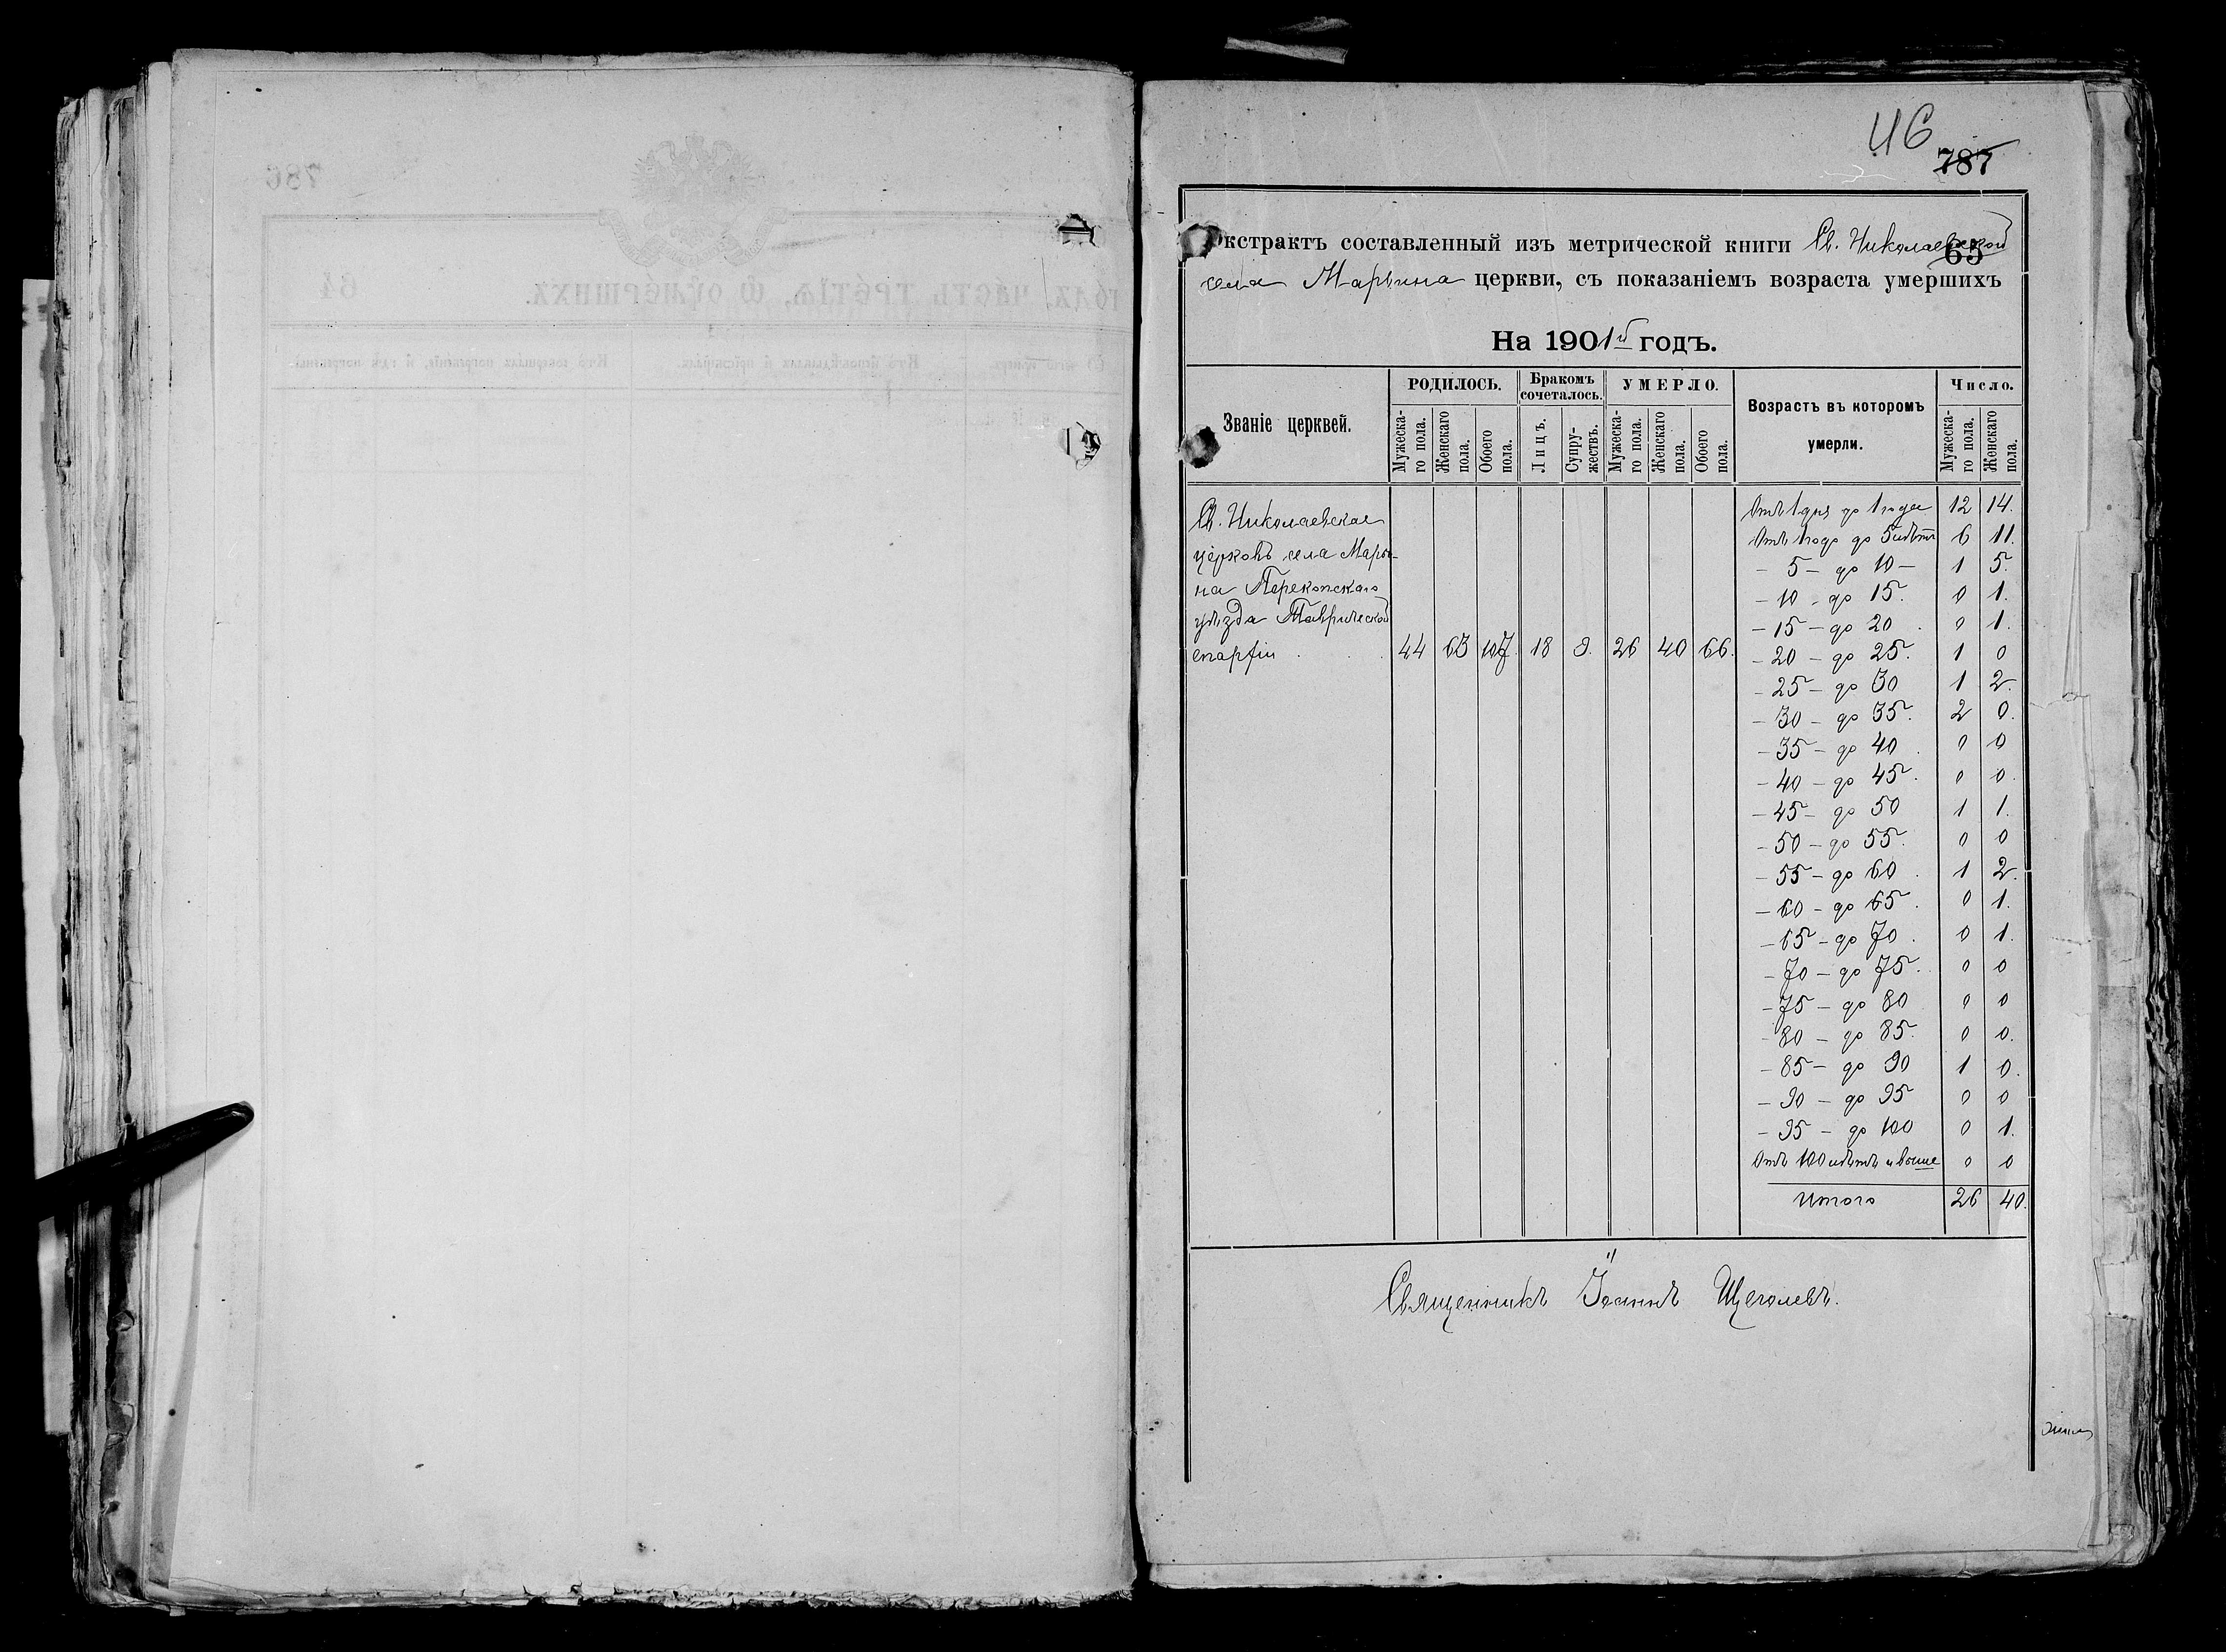 46
787
Экстрактъ составленный изъ метрической книги Св. Николаевской
65
села Марьина церкви, съ показаніемъ возраста умершихъ
На 1901й годъ.
Званіе церквей.
РОДИЛОСЬ.
Бракомъ сочеталось.
УМЕРЛО.
Возрастъ въ которомъ умерли.
Число.
Мужеска-го пола.
Женскаго пола.
Обоего пола.
Лицъ.
Супру-жествъ.
Мужеска-го пола.
Женскаго пола.
Обоего пола.
Мужеска-го пола.
Женскаго пола.
Св. Николаевская
церковь села Марьи-
на Перекопскаго
уѣзда Таврической
епархіи . . . 44 63 107. 18 8. 26 40 66.
Отъ 1 дня до 1 года 12 14.
Отъ 1 года до 5 лѣтъ 6 11.
- 5 - до 10 - 1 5.
- 10 - до 15. 0 1.
- 15 - до 20 . 0 1.
- 20 - до 25. 1 0
- 25 - до 30 1 2.
- 30 - до 35. 2 0.
- 35 - до 40 . 0 0
- 40 - до 45. 0 0.
- 45 - до 50 1 1.
- 50 - до 55. 0 0
- 55 - до 60 . 1 2.
- 60 - до 65 . 0 1.
- 65 - до 70 . 0 1.
- 70 - до 75. 0 0
- 75 - до 80 0 0
- 80 - до 85. 0 0.
- 85 - до 90 1 0.
- 90 - до 95 0 0
- 95 - до 100 0 1.
Отъ 100 лѣтъ и выше 0 0
Итого 26 40.
Священникъ Іоаннъ Щеголевъ.